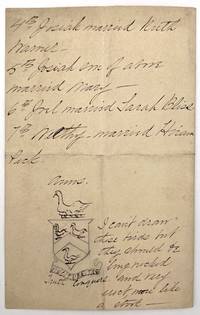 4th Josiah married Ruth
Warner -
5th Josiah son of above
married Mary -
6th Joel married Sarah Bliss
7th married Hiram
Peck
Arms.
I can't draw
these birds but
they should be
and very
erect more like
a stork -